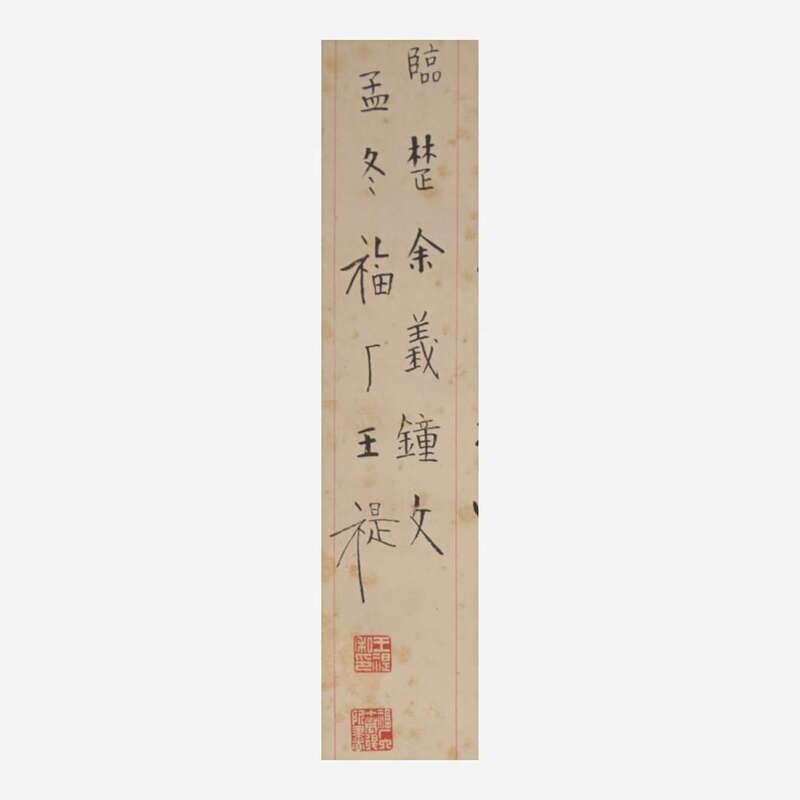 臨楚余義鐘文
孟冬福厂王禔
王禔
私印